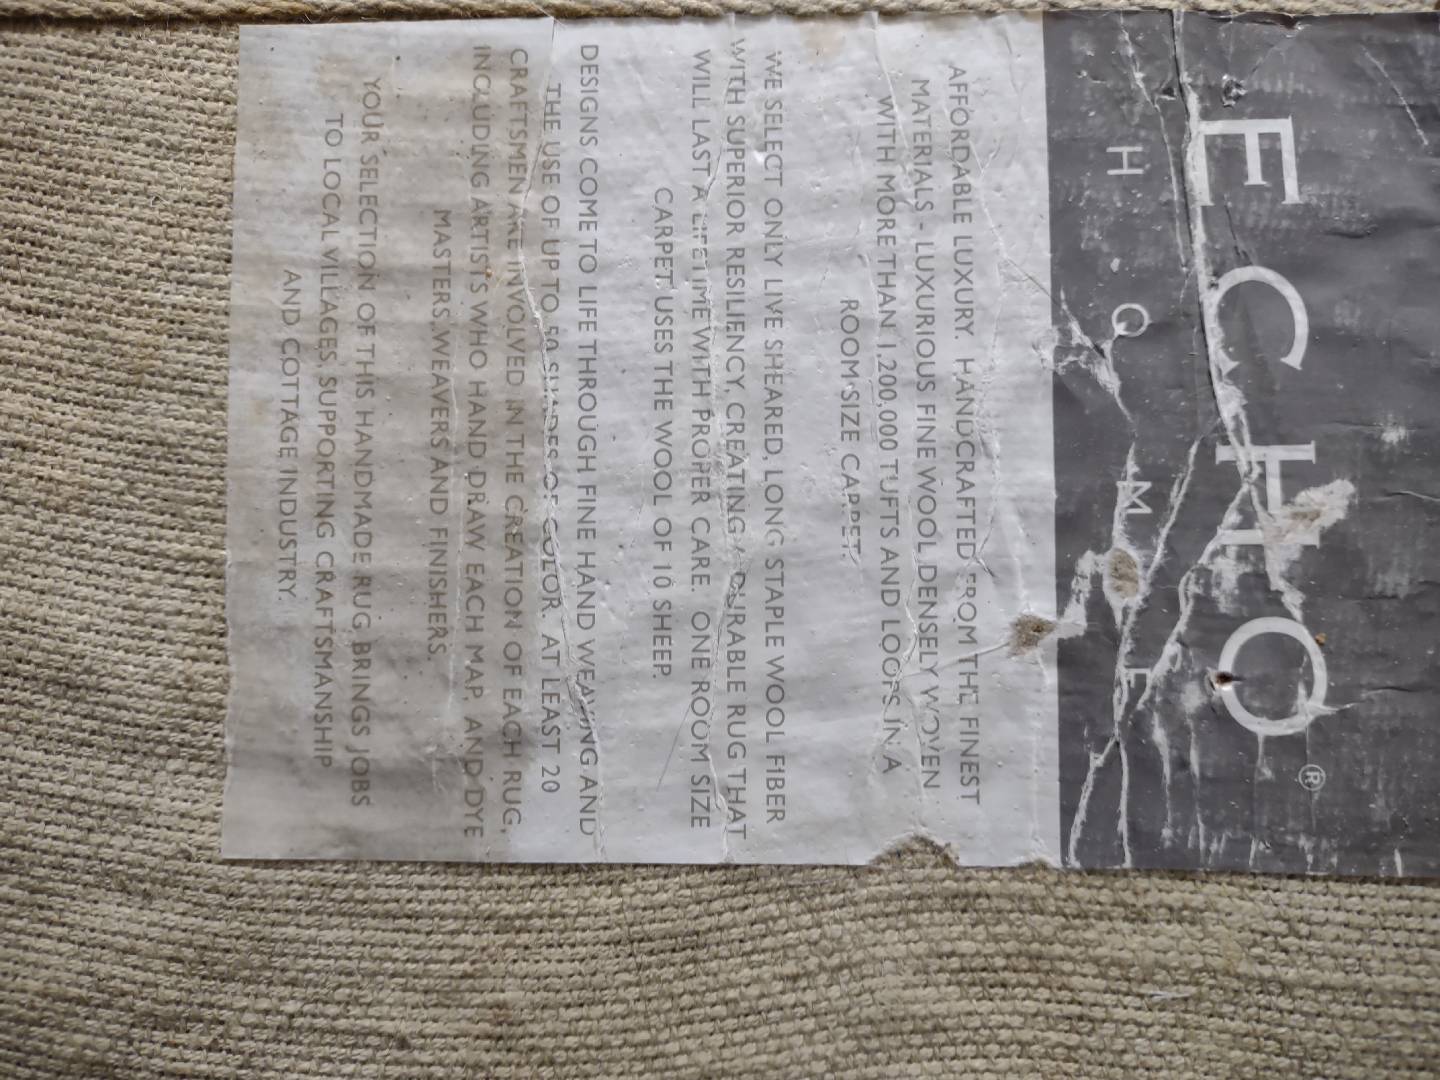 ECHO®
HOME
AFFORDABLE LUXURY. HANDCRAFTED FROM THE FINEST
MATERIALS - LUXURIOUS FINE WOOL, DENSELY WOVEN
WITH MORE THAN 1,200,000 TUFTS AND LOOPS IN A
ROOM-SIZE CARPET.
WE SELECT ONLY LIVE SHEARED, LONG STAPLE WOOL FIBER
WITH SUPERIOR RESILIENCY, CREATING A DURABLE RUG THAT
WILL LAST A LIFETIME WITH PROPER CARE. ONE ROOM SIZE
CARPET USES THE WOOL OF 10 SHEEP.
DESIGNS COME TO LIFE THROUGH FINE HAND WEAVING AND
THE USE OF UP TO 50 SHADES OF COLOR. AT LEAST 20
CRAFTSMEN ARE INVOLVED IN THE CREATION OF EACH RUG,
INCLUDING ARTISTS WHO HAND DRAW EACH MAP, AND DYE
MASTERS, WEAVERS AND FINISHERS.
YOUR SELECTION OF THIS HANDMADE RUG BRINGS JOBS
TO LOCAL VILLAGES, SUPPORTING CRAFTSMANSHIP
AND COTTAGE INDUSTRY.